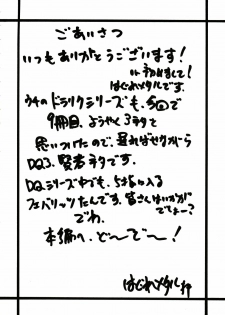 ごあいさつ
いつもありがとうございます!
or 初めまして!
はぐれメタルです。
うちのドラクエシリーズも、今回で
9冊目、ようやく3ネタと
思いつけたので、遅ればせながら
DQ3、賢者ネタです。
DQシリーズ中でも、5本に入る
フェバリットたんです。皆さんはいかがでしょー?
でわ、
本編へ、ど〜で〜!
はぐれメタル